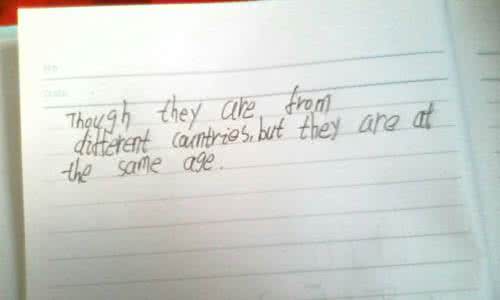 Though they are from
different countries, but they are at
the same age.